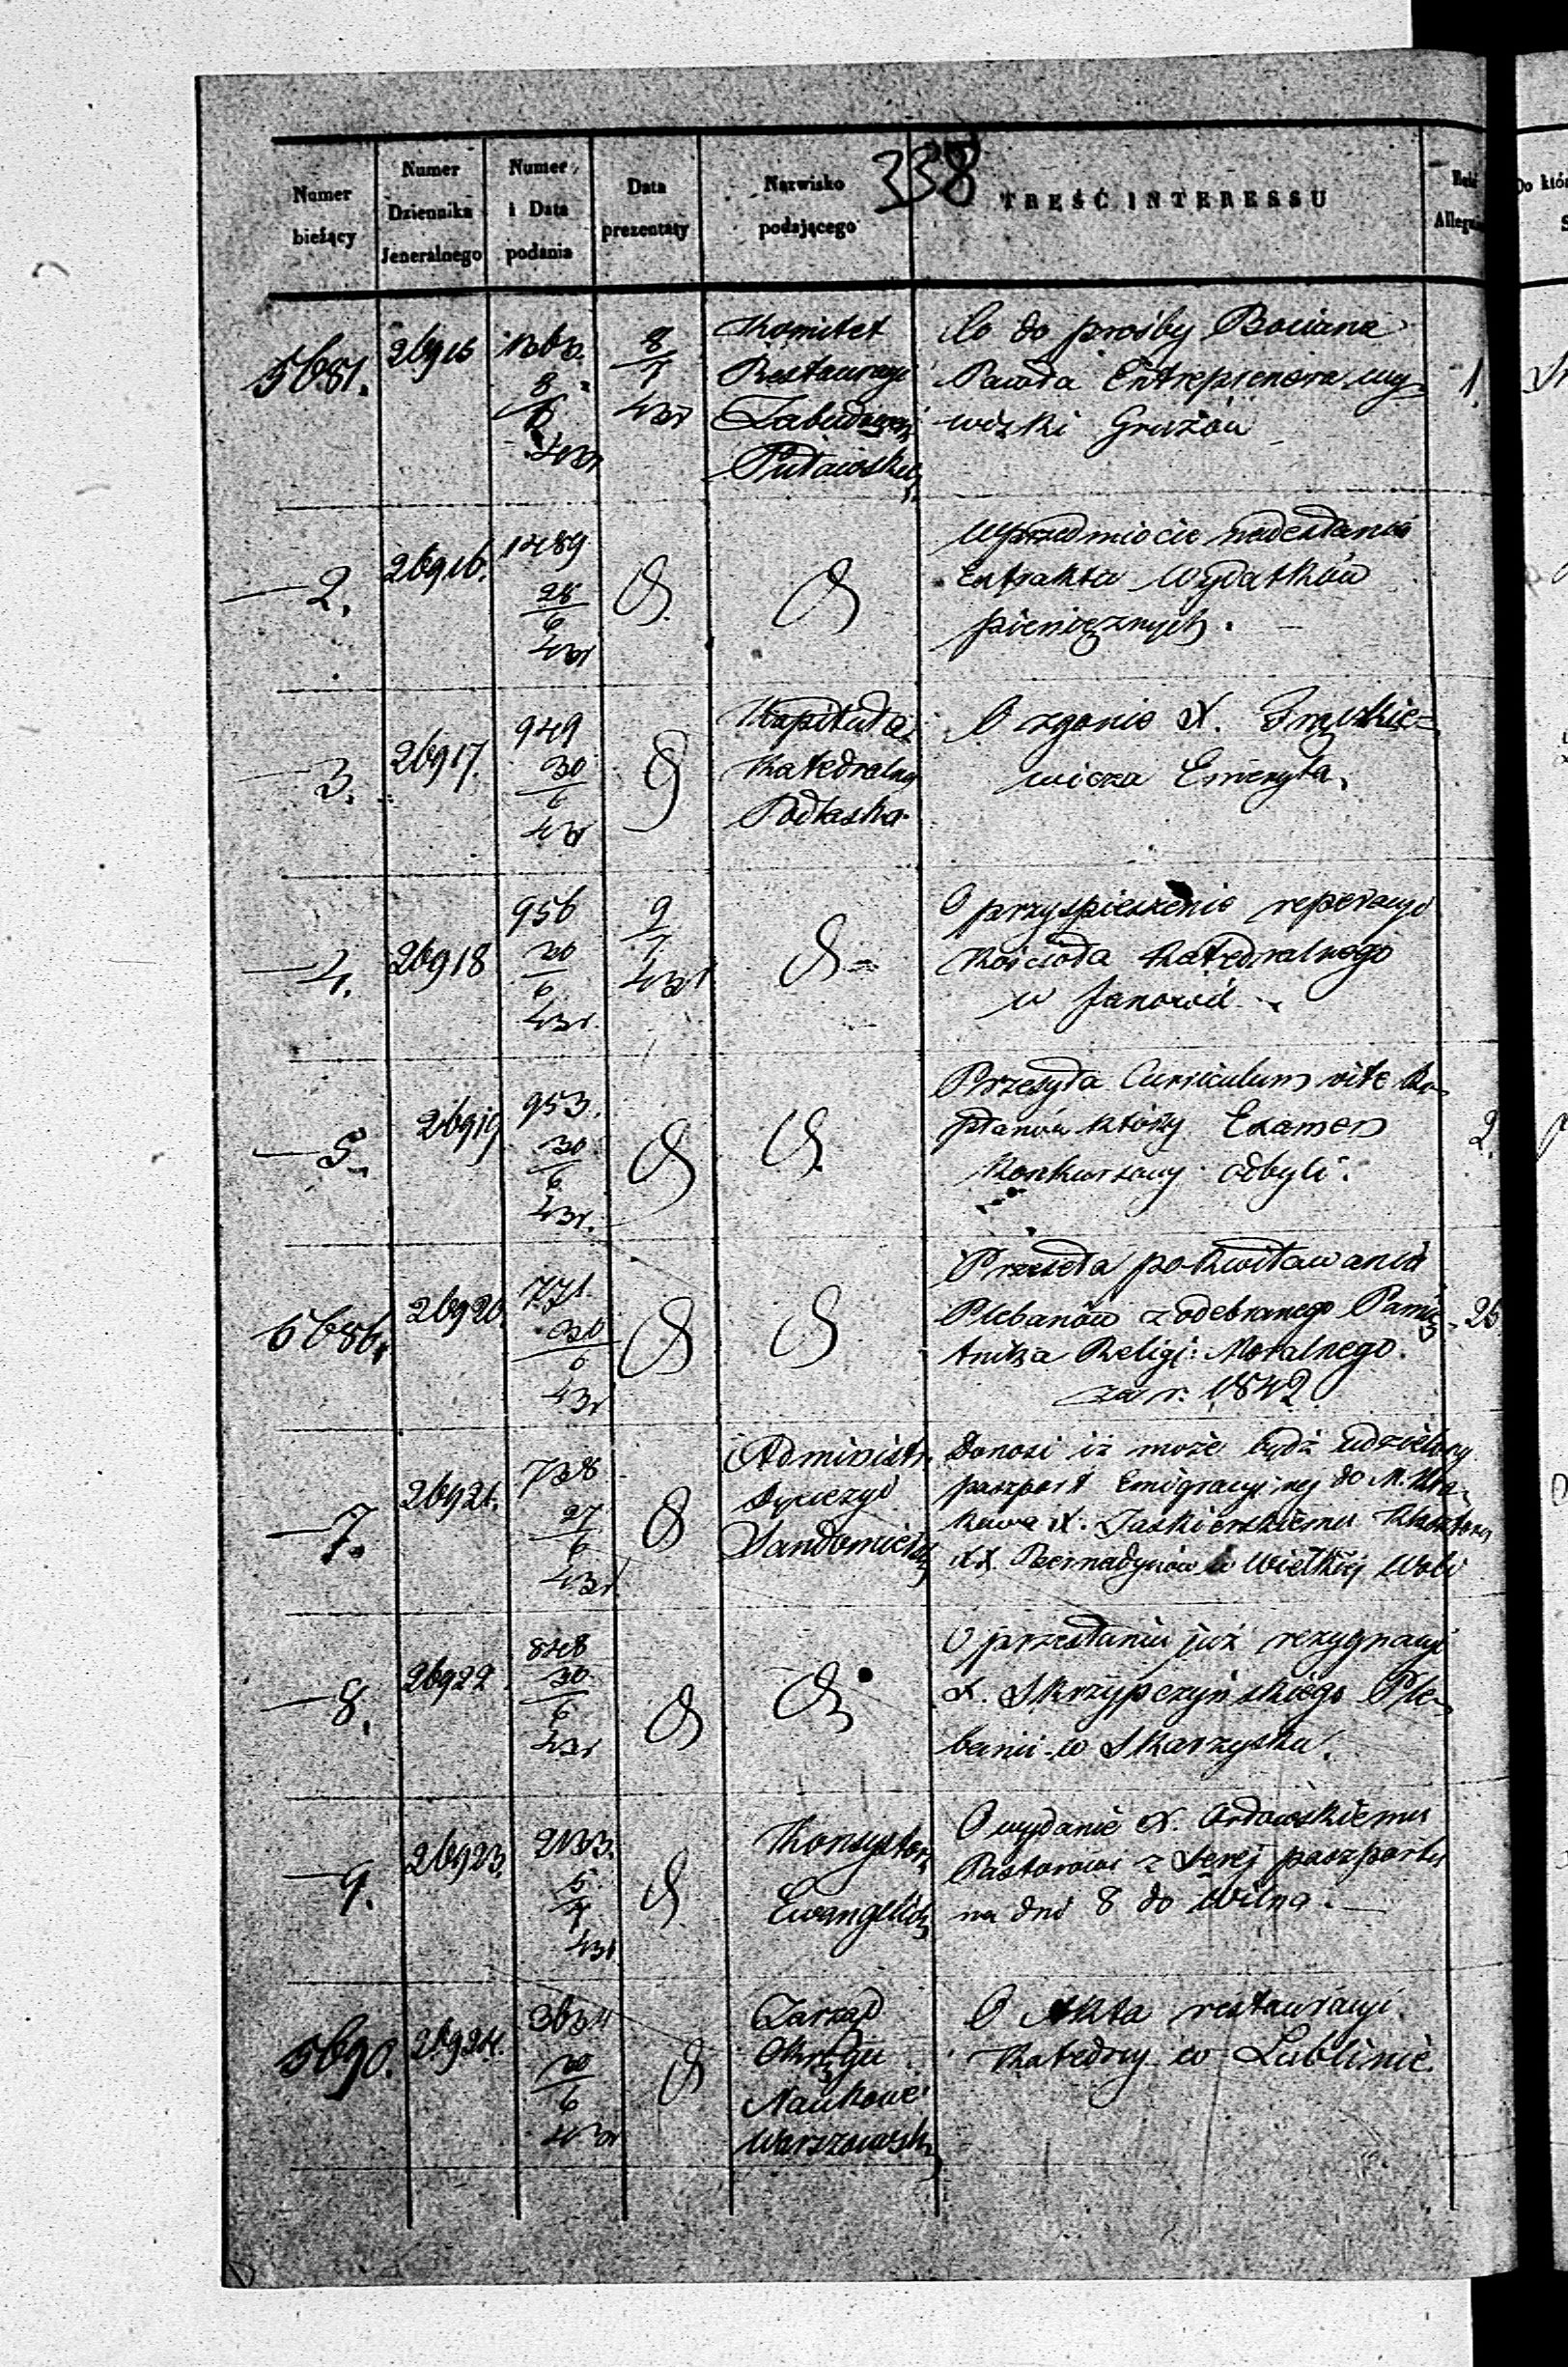 338
Numer bieżący
Numer Dziennika Jeneralnego
Numer i Data podania
Data prezentaty
Nazwisko podającego
TREŚĆ INTERESSU
Ilość Allega
Do któ
5681. 26915 8/7 431 Komitet Restauracyi Zabudowań Puławskich
Co do prośby Bociana
Pawła Entreprenera wy=
wózki Gruzów
1.
—2. 26916. 1489 28/6 431 d d
W przedmiocie nadesłania
extraktu wydatków
pieniężnych. —
—3. 26917. 949 30/6 431 d Kapituła Katedralna Podlaska
O zgonie X.
wicza Emeryta.
—4. 26918 956 30/6 431 9/7 431 d
O przyspieszenie reperacyi
Kościoła Katedralnego
w Janowie
—5. 26919 953. 30/6 431. d d.
Przesyła Curriculum vite Ka=
płanów którzy Examen
Konkursowy odbyli.
2.
5686. 26920 771. 30/6 431 d d
Przesyła pokwitowania
Plebanów z odebranego Pamię=
tnika Religi: Moralnego.
za r. 1842
25
—7. 26921. 738 27/6 431 d Administr. Dyecezyi Sandomiers
Donosi iż może bydź udzielony
paszport Emigracyjny do M. Kra=
kowa X. Jaskierskiemu
XX. Bernadynów w Wielkiej Woli
—8. 26922. 848 30/6 431 d d
O przesłaniu już rezygnacyi
X. Skrzypczyńskiego Ple=
banii w Skarzysku.
—9. 26923. 2133. 5/7 431 d. Konsystorz Ewangelick
O wydanie X. Orłowskiemu
Pastorowi z Serej paszportu
na dni 8 do Wilna. —
5690. 26924. 3634 30/6 431 d Zarząd Okręgu Naukowe Warszawsk
O Akta restauracyi
Katedry w Lublinie.